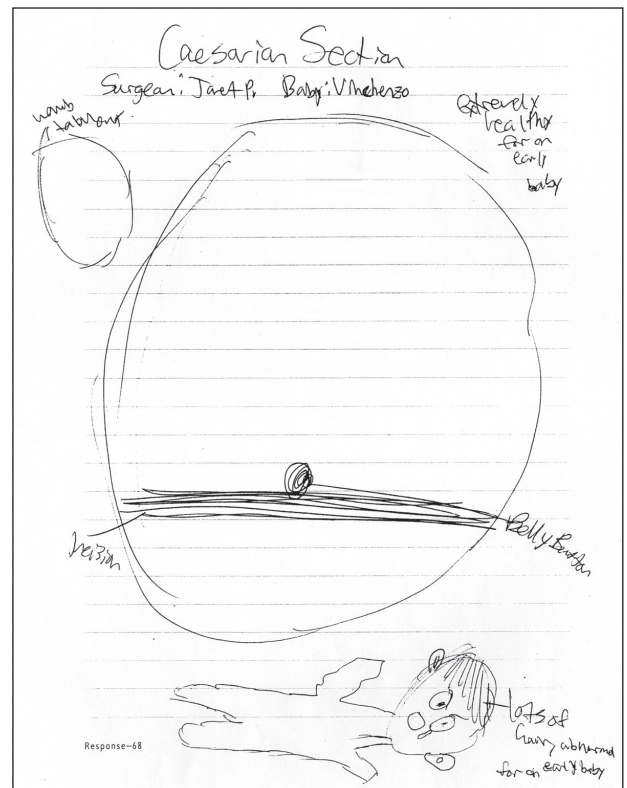 Caesarian Section
Surgeon: Janet P. Baby: Vinchenzo
womb
Extremely
healthy
for an
early
baby
Incision
Belly Button
lots of
hair, abnormal
for an early baby
Response–68